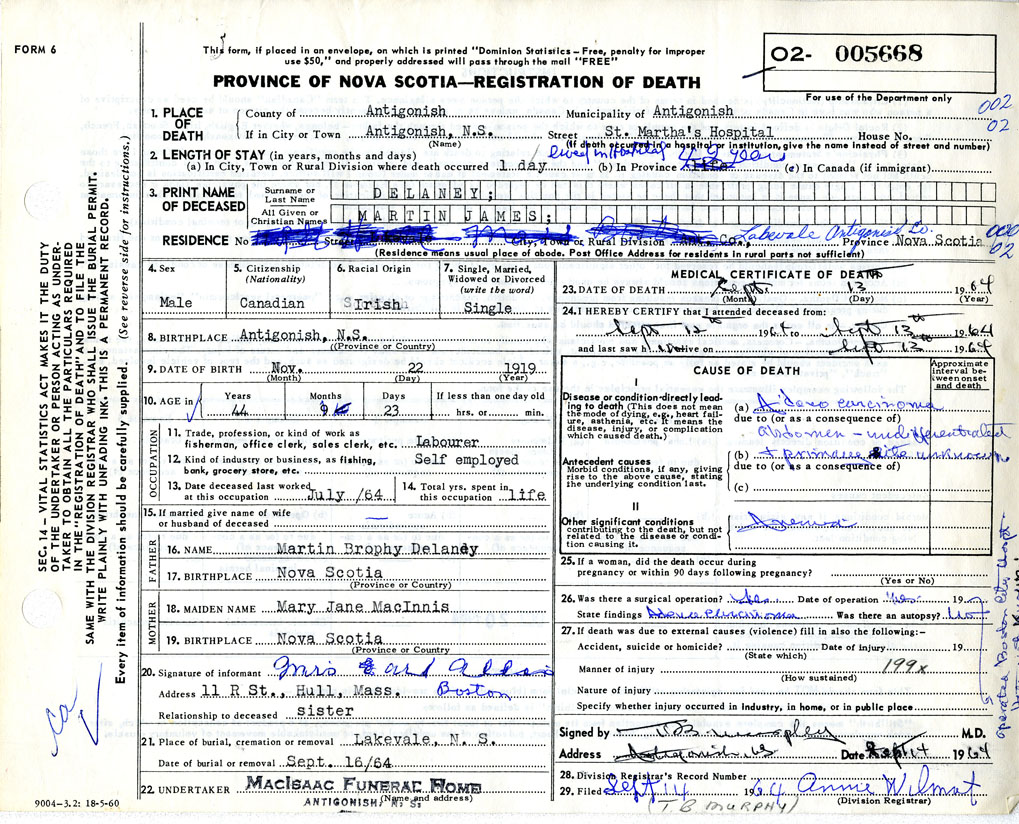 FORM 6
This form, if placed in an envelope, on which is printed "Dominion Statistics – Free, penalty for improper
use $50," and properly addressed will pass through the mail "FREE"
PROVINCE OF NOVA SCOTIA—REGISTRATION OF DEATH
O2- 005668
For use of the Department only
002
02
1. PLACE OF DEATH
County of Antigonish Municipality of Antigonish
If in City or Town Antigonish, N.S. Street St. Martha's Hospital House No.
(Name) (If death occurred in a hospital or institution, give the name instead of street and number)
2. LENGTH OF STAY (in years, months and days)
(a) In City, Town or Rural Division where death occurred 1 day (b) In Province (c) In Canada (if immigrant)
3. PRINT NAME OF DECEASED
Surname or Last Name DELANEY;
All Given or Christian Names MARTIN JAMES;
RESIDENCE No Street City, Town or Rural Division Lakevale Antigonish Co. Province Nova Scotia
(Residence means usual place of abode. Post Office Address for residents in rural parts not sufficient)
02
4. Sex Male
5. Citizenship (Nationality) Canadian
6. Racial Origin Irish
7. Single, Married, Widowed or Divorced (write the word) Single
8. BIRTHPLACE Antigonish, N.S.
(Province or Country)
9. DATE OF BIRTH Nov. 22 1919
(Month) (Day) (Year)
10. AGE in Years 44 Months 9 Days 23 If less than one day old hrs. or min.
OCCUPATION
11. Trade, profession, or kind of work as fisherman, office clerk, sales clerk, etc. Labourer
12. Kind of industry or business, as fishing, bank, grocery store, etc. Self employed
13. Date deceased last worked at this occupation July /64
14. Total yrs. spent in this occupation life
15. If married give name of wife or husband of deceased —
FATHER
16. NAME Martin Brophy Delaney
17. BIRTHPLACE Nova Scotia
(Province or Country)
MOTHER
18. MAIDEN NAME Mary Jane MacInnis
19. BIRTHPLACE Nova Scotia
(Province or Country)
20. Signature of informant Mrs
Address 11 R St., Hull, Mass. Boston
Relationship to deceased sister
21. Place of burial, cremation or removal Lakevale, N. S.
Date of burial or removal Sept. 16/64
22. UNDERTAKER MACISAAC FUNERAL HOME
(Name and address)
ANTIGONISH, N. S.
9004-3.2: 18-5-60
MEDICAL CERTIFICATE OF DEATH
23. DATE OF DEATH Sept. 13 1964
(Month) (Day) (Year)
24. I HEREBY CERTIFY that I attended deceased from:
Sept 12th 1964 to Sept 13th 1964
and last saw h alive on Sept 13th 1964
CAUSE OF DEATH
Approximate interval between onset and death
I
Disease or condition directly leading to death (This does not mean the mode of dying, e.g., heart failure, asthenia, etc. It means the disease, injury, or complication which caused death.)
(a) Adenocarcinoma
due to (or as a consequence of)
abdomen – undifferentiated
Antecedent causes
Morbid conditions, if any, giving rise to the above cause, stating the underlying condition last.
(b) + primary site unknown
due to (or as a consequence of)
(c)
II
Other significant conditions
contributing to the death, but not related to the disease or condition causing it.
Anemia
25. If a woman, did the death occur during
pregnancy or within 90 days following pregnancy?
(Yes or No)
26. Was there a surgical operation? Yes Date of operation 19
State findings Adenocarcinoma Was there an autopsy? No
27. If death was due to external causes (violence) fill in also the following:–
Accident, suicide or homicide? Date of injury 19
(State which)
Manner of injury 199x
(How sustained)
Nature of injury
Specify whether injury occurred in industry, in home, or in public place
Signed by M.D.
Address Antigonish NS Date Sept 14 1964
28. Division Registrar's Record Number
29. Filed Sept 14 1964 Annie Wilmot
(Division Registrar)
(T B MURPHY)
SEC. 14 – VITAL STATISTICS ACT MAKES IT THE DUTY
OF THE UNDERTAKER OR PERSON ACTING AS UNDER-
TAKER TO OBTAIN ALL THE PARTICULARS REQUIRED
IN THE "REGISTRATION OF DEATH" AND TO FILE THE
SAME WITH THE DIVISION REGISTRAR WHO SHALL ISSUE THE BURIAL PERMIT.
WRITE PLAINLY WITH UNFADING INK. THIS IS A PERMANENT RECORD.
Every item of information should be carefully supplied. (See reverse side for instructions.)
ca
operated Boston City Hosp